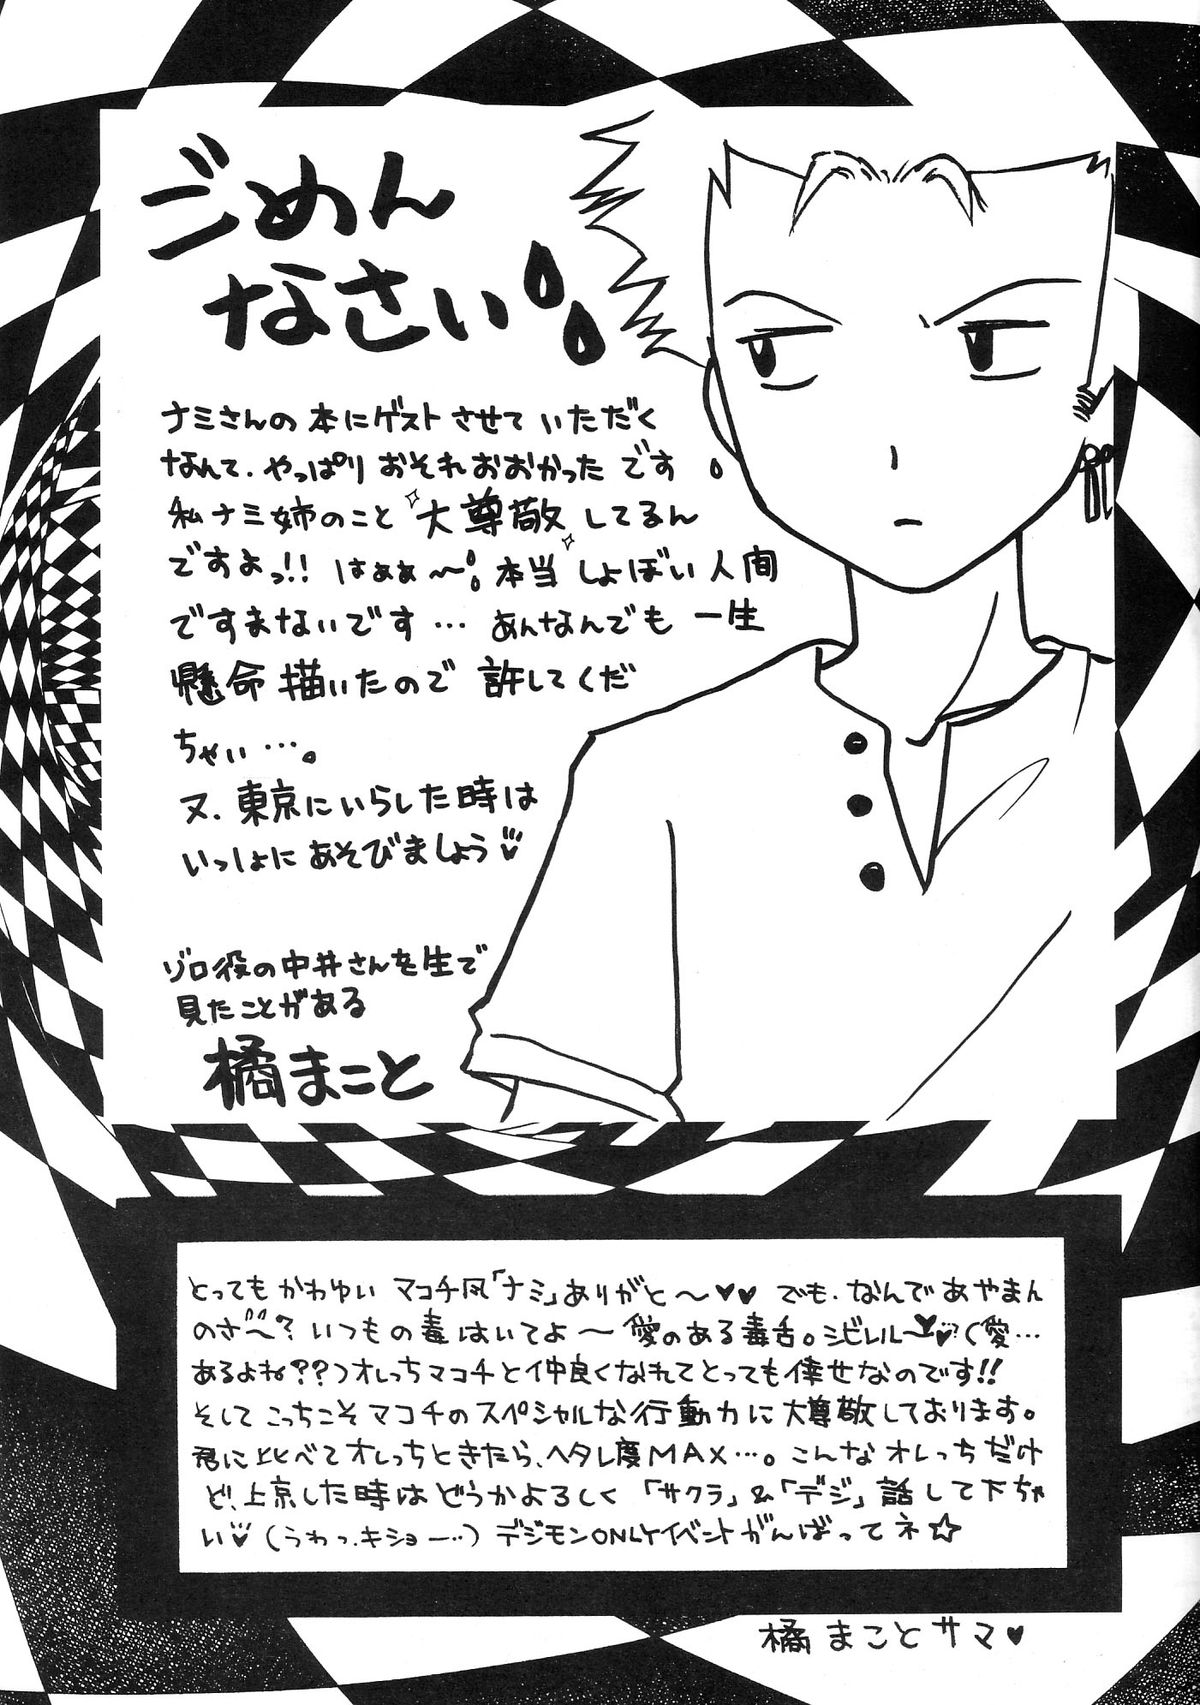 ごめん
なさい
ナミさんの本にゲストさせていただく
なんて、やっぱりおそれおおかったです
私ナミ姉のこと大尊敬してるん
ですよっ!! はぁぁ〜 本当しょぼい人間
ですまないです… あんなんでも一生
懸命描いたので許してくだ
ちゃい…。
又、東京にいらした時は
いっしょにあそびましょう♡
ゾロ役の中井さんを生で
見たことがある
橘まこと
とってもかわゆいマコチ風「ナミ」ありがと〜♥♥ でも、なんであやまん
のさ〜? いつもの毒はいてよ〜 愛のある毒舌。シビレル〜♥(愛…
あるよね??)オレっちマコチと仲良くなれてとっても倖せなのです!!
そしてこっちこそマコチのスペシャルな行動力に大尊敬しております。
君に比べてオレっちときたら、ヘタレ度MAX…。こんなオレっちだけ
ど、上京した時はどうかよろしく「サクラ」&「デジ」話して下ちゃ
い♥(うわっ、キショー…)デジモンONLYイベントがんばってネ☆
橘まことサマ♥